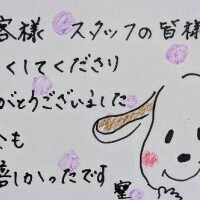 客様 スタッフの皆様
くしてくださり
がとうございました
も
しかったです